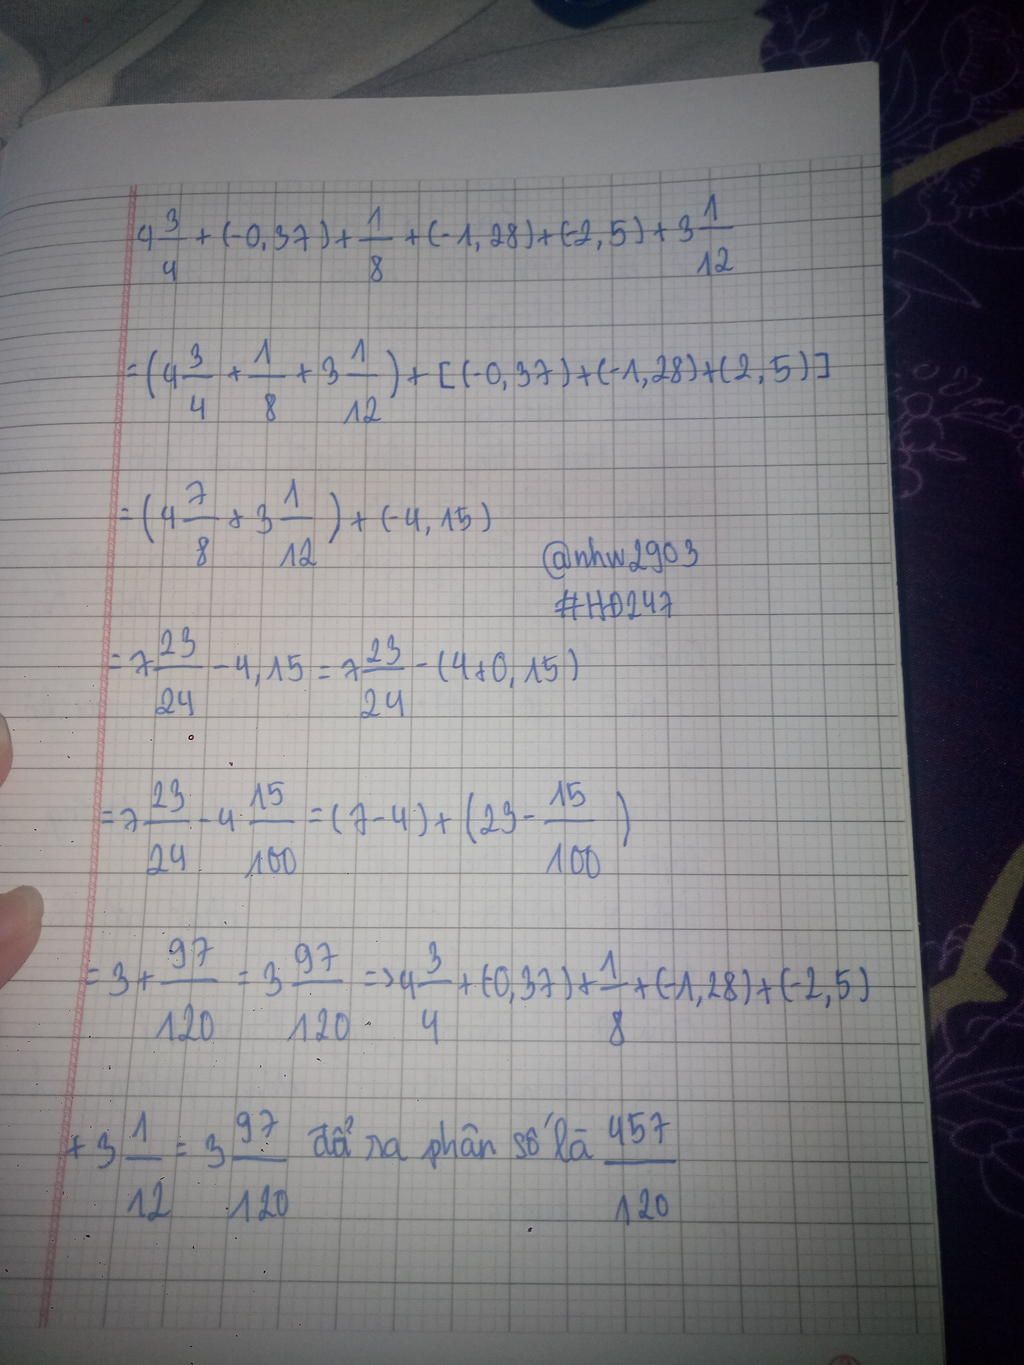 4 3/4 + (-0,37) + 1/8 + (-1,28) + (-2,5) + 3 1/12
= (4 3/4 + 1/8 + 3 1/12) + [(-0,37) + (-1,28) + (2,5)]
= (4 7/8 + 3 1/12) + (-4,15)
@nhw2903
#HD247
= 7 23/24 - 4,15 = 7 23/24 - (4+0,15)
= 7 23/24 - 4 15/100 = (7-4) + (23 - 15/100)
= 3 + 97/120 = 3 97/120 => 4 3/4 + (-0,37) + 1/8 + (-1,28) + (-2,5)
+ 3 1/12 = 3 97/120 đổi ra phân số là 457/120